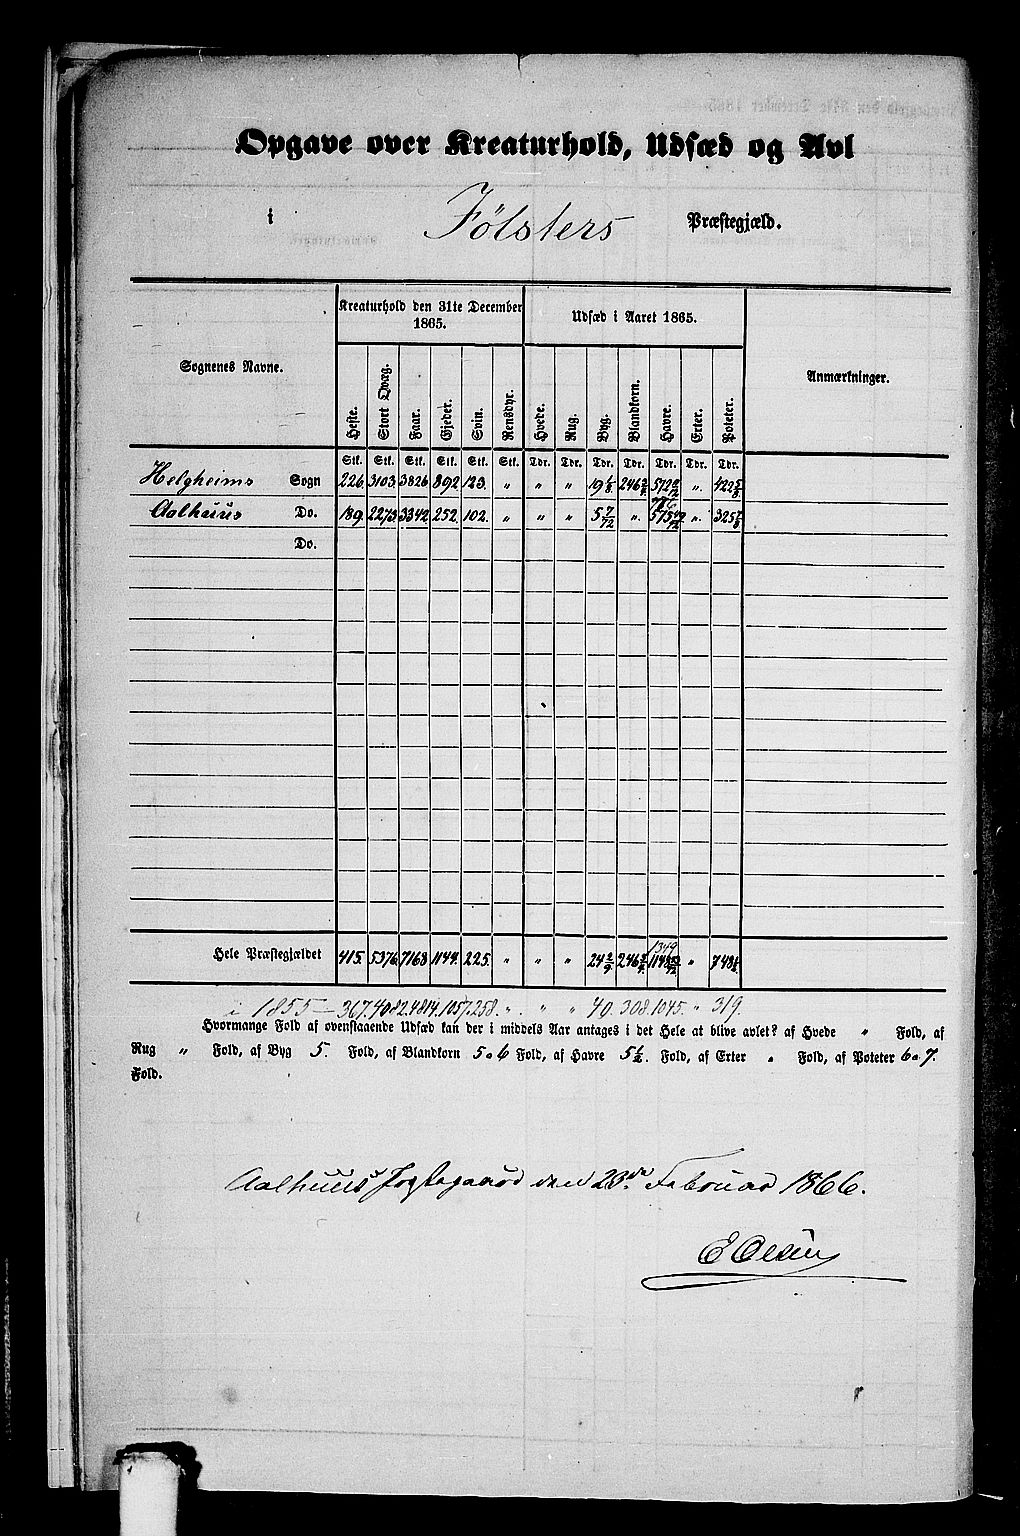 Opgave over Kreaturhold, Udsæd og Avl
i Jølsters Præstegjæld.
Sognenes Navne.
Kreaturhold den 31te December 1865.
Udsæd i Aaret 1865.
Anmærkninger.
Heste. Stort Qvæg. Faar. Gjeder. Svin. Rensdyr. Hvede. Rug. Byg. Blandkorn. Havre. Erter. Poteter.
Stk. Stk. Stk. Stk. Stk. Stk. Tdr. Tdr. Tdr. Tdr. Tdr. Tdr. Tdr.
Helgheims Sogn 226. 3103. 3826 892 123. " " " 19 1/8 246 2/9 ". 422 5/8
Aalhuus Do. 189. 2273 3342 252. 102. " " " 5 7/72 ". ". 325 7/8
Do.
Hele Præstegjældet 415. 5376 7168 1144. 225. " " " 24 2/9 246 2/9 1349 "
i 1855 — 367. 4082. 4814. 1057. 258. ". " " 40. 308. 1045. " 319.
Hvormange Fold af ovenstaaende Udsæd kan der i middels Aar antages i det Hele at blive avlet? af Hvede " Fold, af
Rug " Fold, af Byg 5. Fold, af Blandkorn 5 a 6 Fold, af Havre 5 1/2. Fold, af Erter " Fold, af Poteter 6 a 7.
Fold.
Aalhuus den Februar 1866.
E Olsen